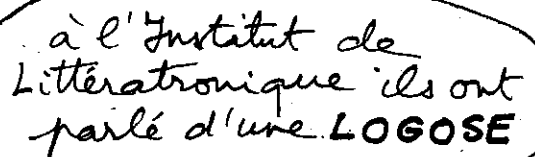 à l'Institut de
Littératronique ils ont
parlé d'une LOGOSE